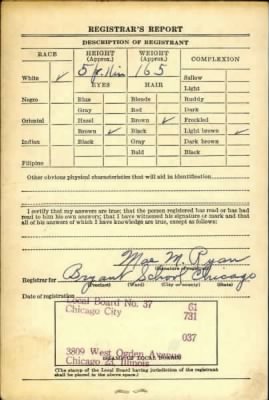 REGISTRAR'S REPORT
DESCRIPTION OF REGISTRANT
RACE HEIGHT (Approx.) WEIGHT (Approx.) COMPLEXION
White ✓ 5 ft. 11 in 165 Sallow
EYES HAIR Light
Negro Blue Blonde Ruddy
Gray Red Dark
Oriental Hazel Brown ✓ Freckled
Brown ✓ Black Light brown ✓
Indian Black Gray Dark brown
Bald Black
Filipino
Other obvious physical characteristics that will aid in identification
I certify that my answers are true; that the person registered has read or has had
read to him his own answers; that I have witnessed his signature or mark and that
all of his answers of which I have knowledge are true, except as follows:
Mae M. Ryan
(Signature of registrar)
Registrar for Bryant School Chicago
(Precinct) (Ward) (City or county) (State)
Date of registration
Local Board No. 37 61
Chicago City 731
037
3809 West Ogden Avenue
Chicago 23, Illinois
(STAMP OF LOCAL BOARD)
(The stamp of the Local Board having jurisdiction of the registrant
shall be placed in the above space.)